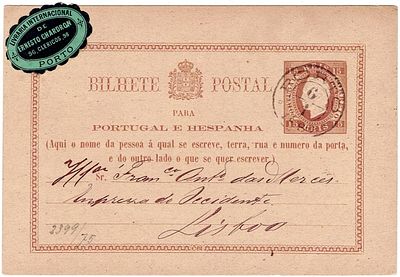 LIVRARIA INTERNACIONAL
DE
ERNESTO CHARDRON
96, CLERIGOS, 98
PORTO
BILHETE POSTAL
PARA
PORTUGAL E HESPANHA
(Aqui o nome da pessoa á qual se escreve, terra, rua e numero da porta,
e do outro lado o que se quer escrever.)
Sr. Franco Anto das Mercês
Empreza do Occidente
Lisboa
2399/78